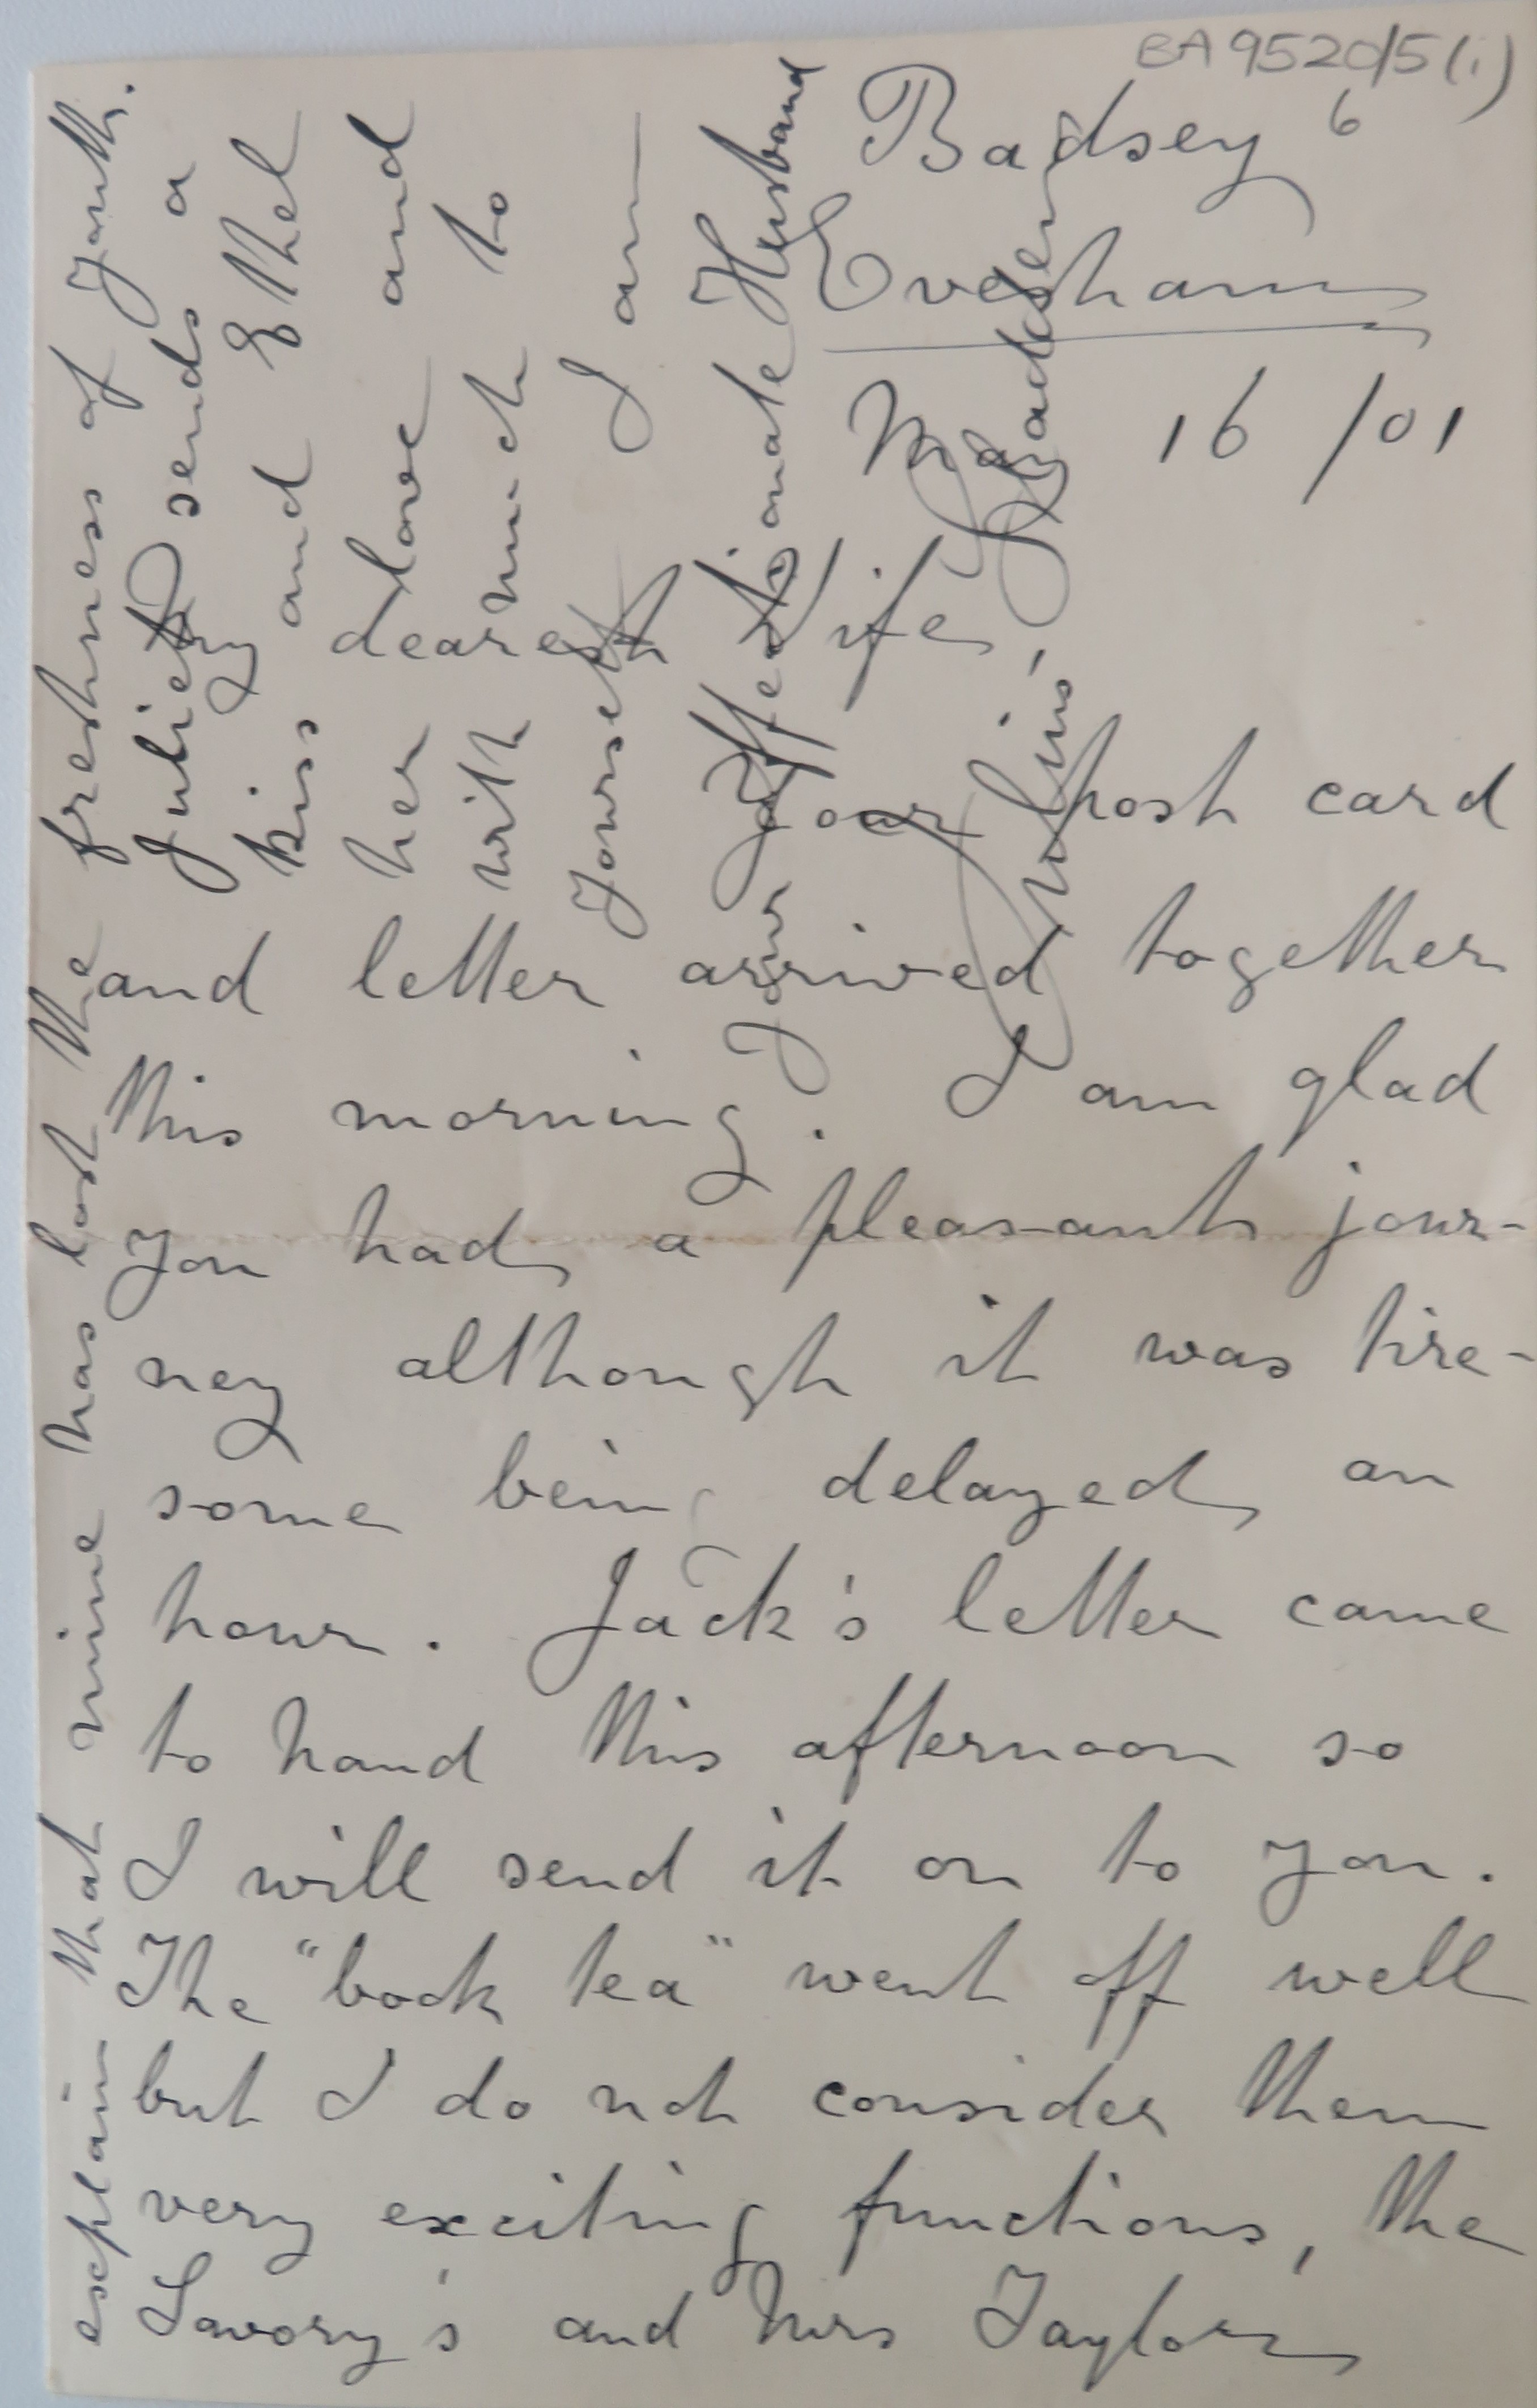 BA 9520/5(i)
6
Badsey
Evesham
May 16/01
My dearest Wife,
Your post card
and letter arrived together
this morning. I am glad
you had a pleasant jour-
ney although it was tire-
some being delayed an
hour. Jack's letter came
to hand this afternoon so
I will send it on to you.
The "book tea" went off well
but I do not consider them
very exciting functions, the
Savory's and Mrs Taylor
explain that mine has lost the freshness of youth.
Juliet sends a
kiss and Ethel
her love and
with much to
yourself I am
Your affectionate Husband
Sladden